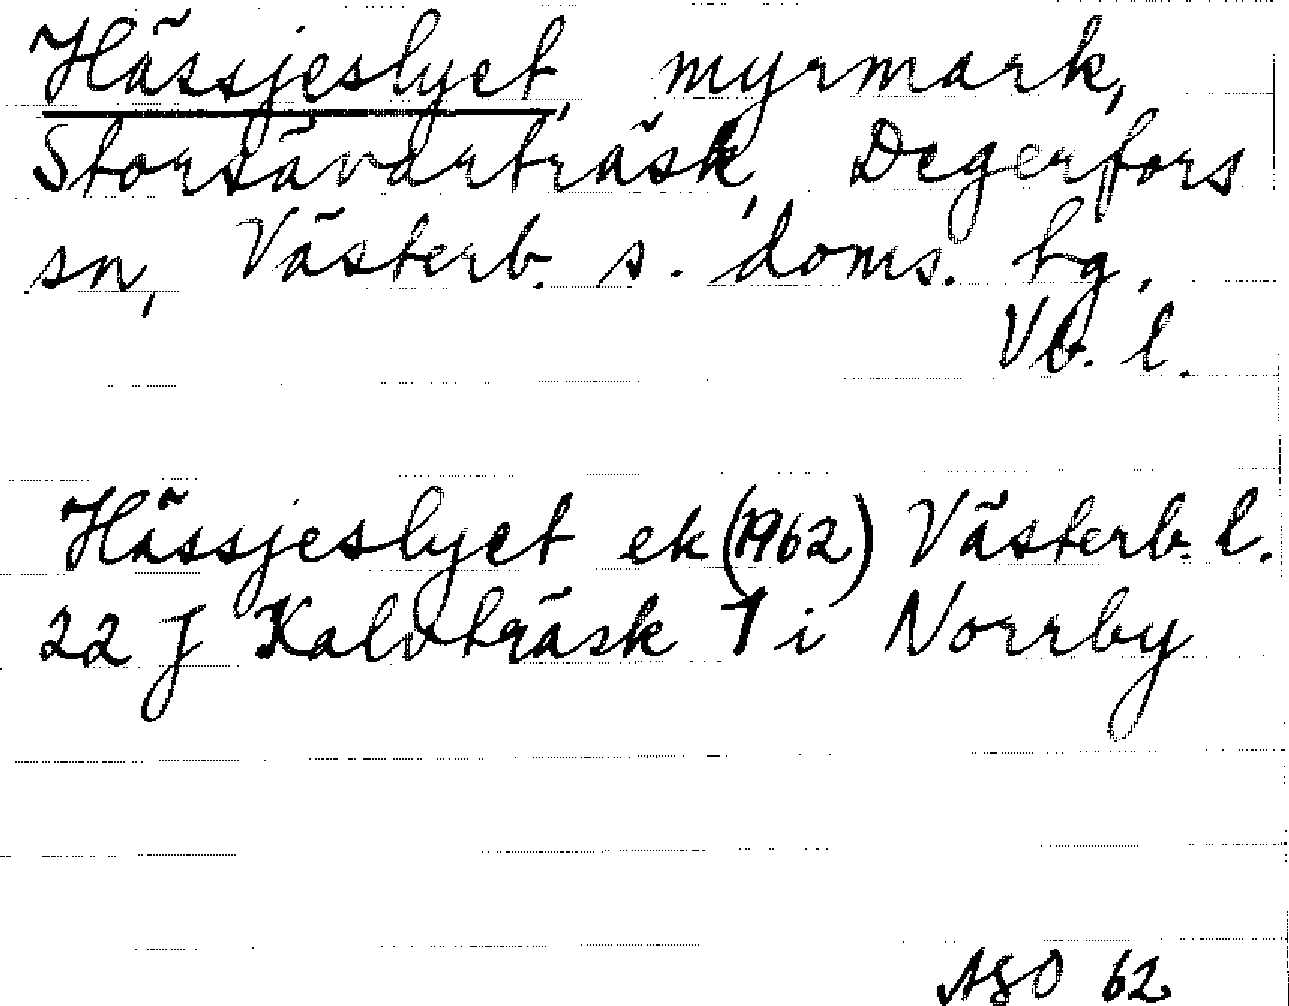 Hässjeslyet, myrmark,
Storsävarträsk, Degerfors
sn, Västerb. s. doms. tg,
Vb. l.
Hässjeslyet ek (1962) Västerb. l.
22 J Kalvträsk 1 i Norrby
62